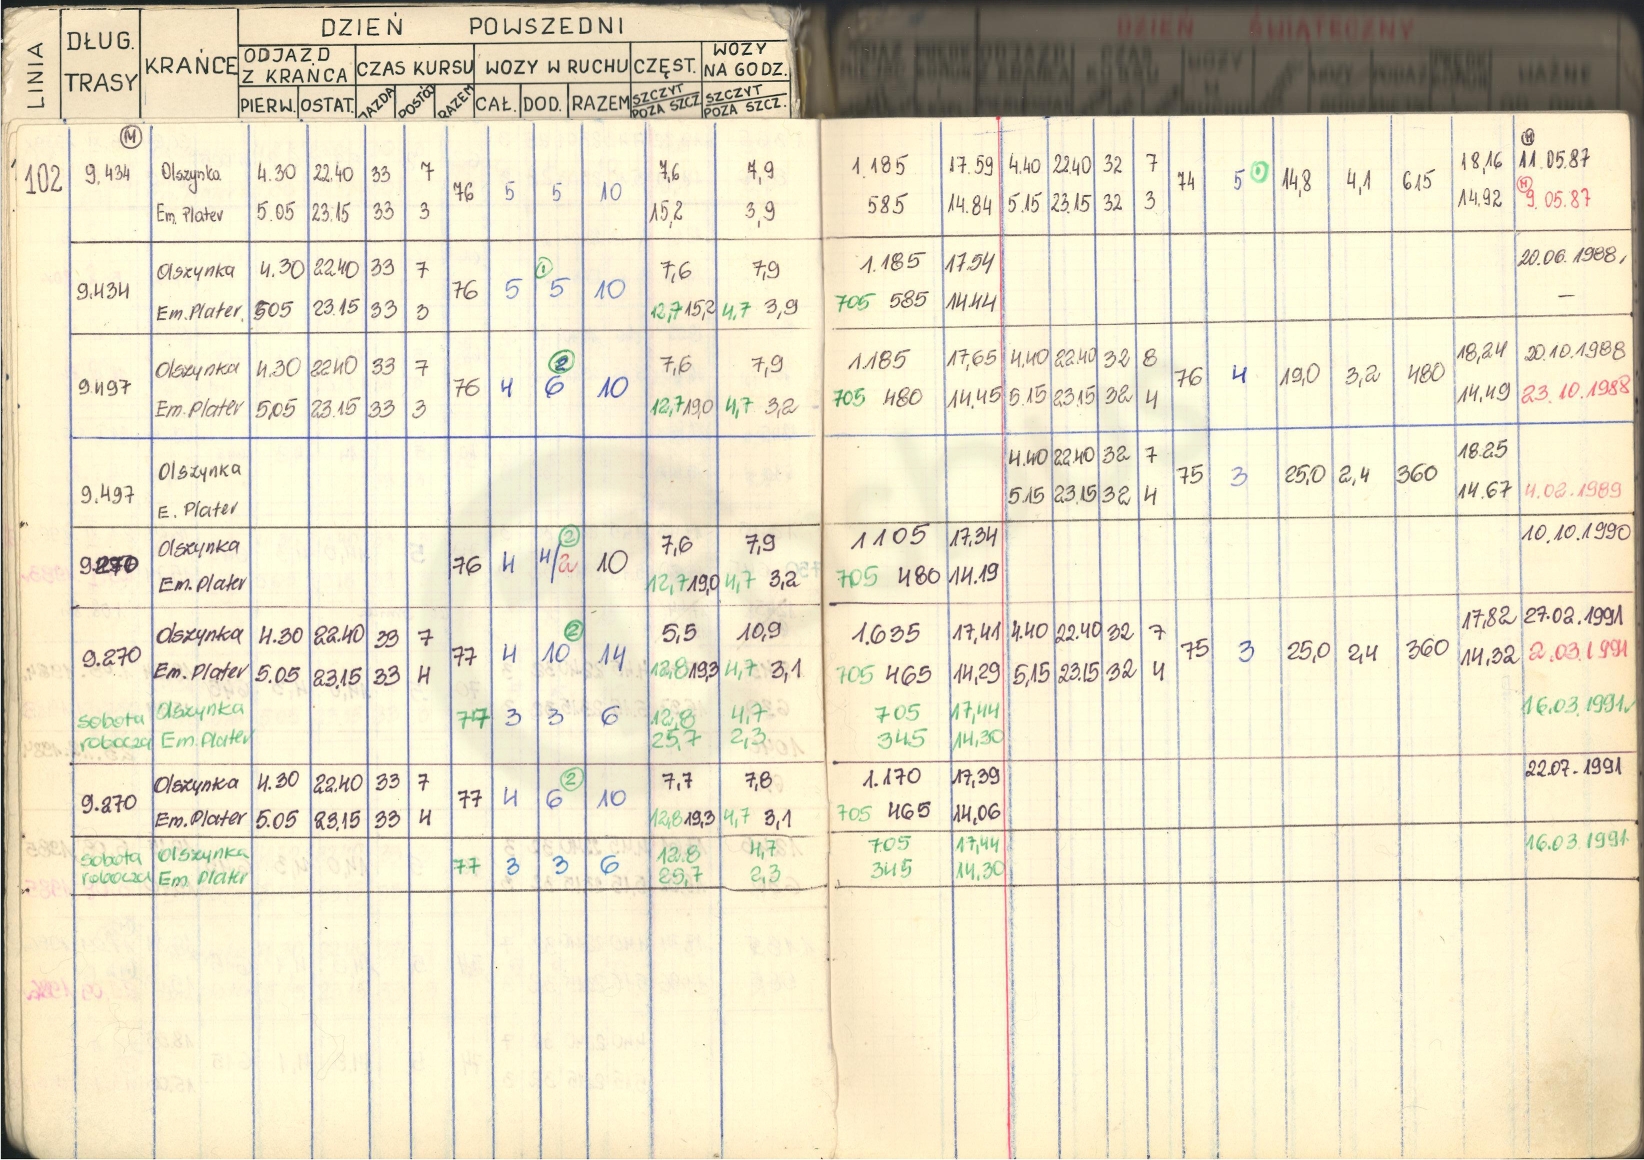 DZIEŃ POWSZEDNI
LINIA DŁUG. TRASY KRAŃCE ODJAZD Z KRAŃCA CZAS KURSU WOZY W RUCHU CZĘST. WOZY NA GODZ.
PIERW. OSTAT. JAZDA POSTÓJ RAZEM CAŁ. DOD. RAZEM SZCZYT POZA SZCZ SZCZYT POZA SZCZ.
DZIEŃ ŚWIĄTECZNY
M M
102 9.434 Olszynka 4.30 22.40 33 7 76 5 5 10 7,6 7,9 1.185 17.59 4.40 22.40 32 7 74 5 1 14,8 4,1 615 18,16 11.05.87
Em. Plater 5.05 23.15 33 3 15,2 3,9 585 14.84 5.15 23.15 32 3 14.92 M 9.05.87
9.434 Olszynka 4.30 22.40 33 7 76 5 1 5 10 7,6 7,9 1.185 17.54 20.06.1988,
Em. Plater 505 23.15 33 3 12,7 15,2 4,7 3,9 705 585 14.44 —
9.497 Olszynka 4.30 2240 33 7 76 4 2 6 10 7,6 7,9 1185 17,65 4.40 22.40 32 8 76 4 19,0 3,2 480 18,24 20.10.1988
Em. Plater 5,05 23.15 33 3 12,7 19,0 4,7 3,2 705 480 14.45 5.15 23.15 32 4 14,49 23.10.1988
9.497 Olszynka 4.40 22.40 32 7 75 3 25,0 2,4 360 18.25
E. Plater 5.15 23.15 32 4 14.67 4.02.1989
9.270 Olszynka 76 4 2 4/2 10 7,6 7,9 1105 17,34 10.10.1990
Em. Plater 12,7 19,0 4,7 3,2 705 480 14.19
9.270 Olszynka 4.30 22.40 33 7 77 4 2 10 14 5,5 10,9 1.635 17,41 4.40 22.40 32 7 75 3 25,0 2,4 360 17,82 27.02.1991
Em. Plater 5.05 23.15 33 4 12,8 19,3 4,7 3,1 705 465 14,29 5,15 23.15 32 4 14,32 2.03.1991
sobota Olszynka 77 3 3 6 12,8 4,7 705 17,44 16.03.1991
robocza Em. Plater 25,7 2,3 345 14,30
9.270 Olszynka 4.30 22.40 33 7 77 4 2 6 10 7,7 7,8 1.170 17,39 22.07.1991
Em. Plater 5.05 23.15 33 4 12,8 19,3 4,7 3,1 705 465 14,06
sobota Olszynka 77 3 3 6 12.8 4,7 705 17,44 16.03.1991
robocza Em. Plater 25,7 2,3 345 14.30